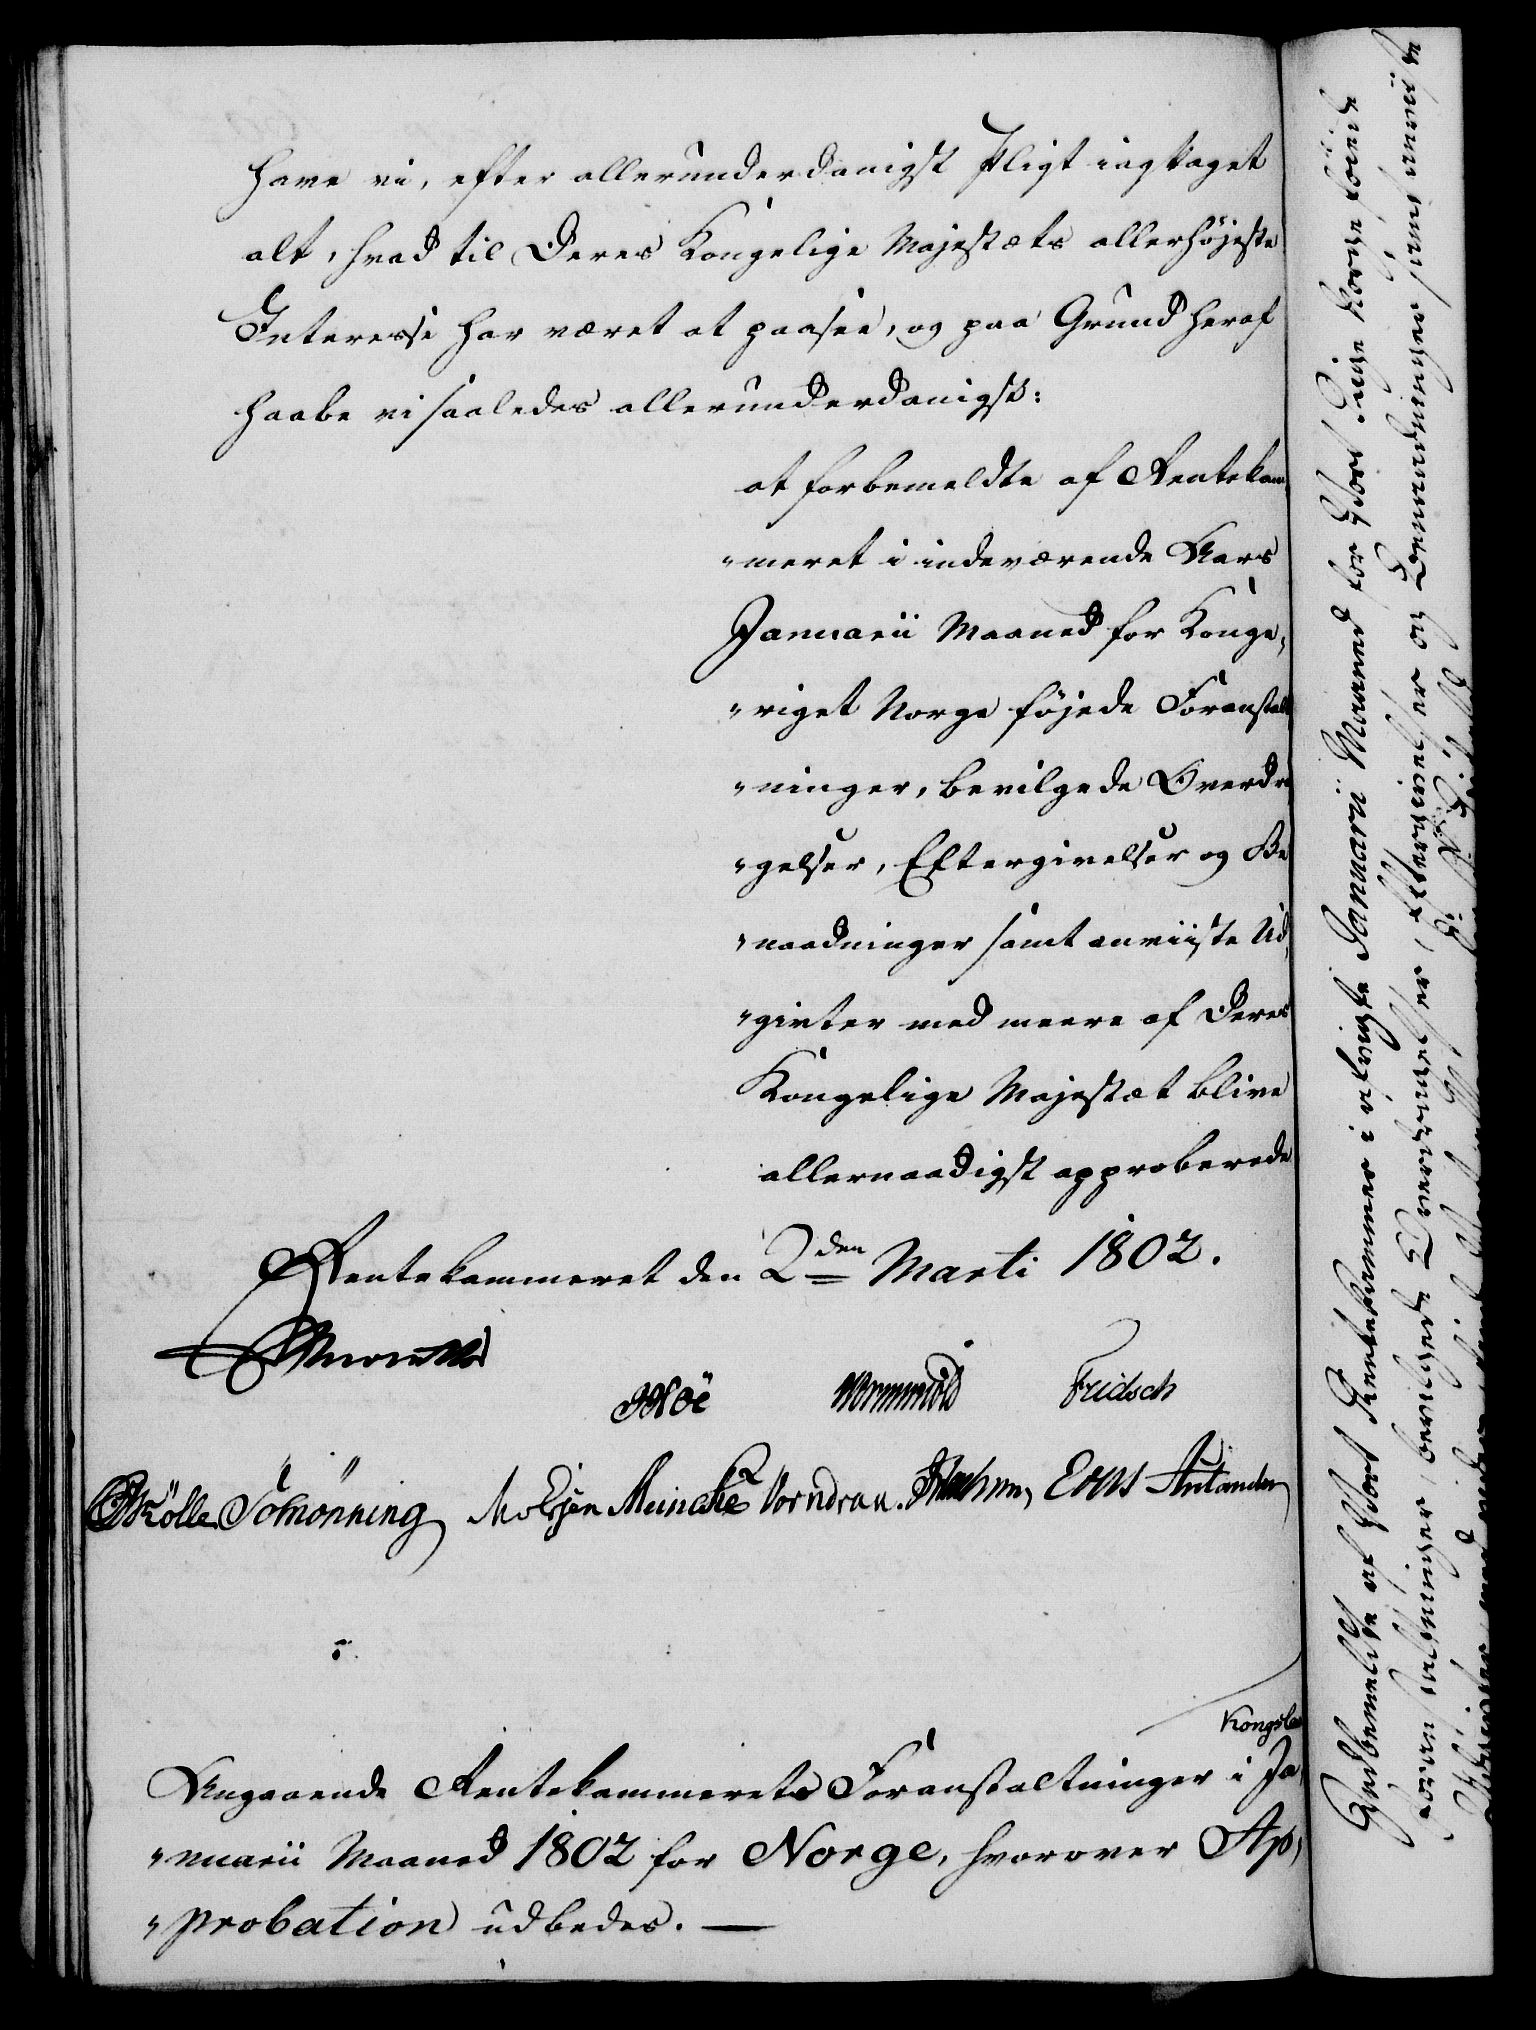 have vi, efter allerunderdanigst Pligt iagttaget
alt, hvad til Deres Kongelige Majestæts allerhøjeste
Interesse har været at paasee, og paa Grund heraf
haabe vi saaledes allerunderdanigst:
at forbemeldte af Rentekam,
"meret i indeværende Aars
Januarii Maaned for Konge,
"riget Norge føjede Foranstalt
"ninger, bevilgede Overdra
"gelser, Eftergivelser og Be
"naadninger samt anviiste Ud,
"givter med meere af Deres
Kongelige Majestæt blive
allernaadigst approberede
Rentekammeret den 2den Marti 1802.
Fridsch
Schönning Meincke Vorndran.
Angaaende Rentekammerets Foranstaltninger i Ja
"nuarii Maaned 1802 for Norge, hvorover Ap,
"probation udbedes. —
Kongel.
Vedbemeldte af Vort Rentekammer i afvigte Januarii Maaned for Vort Rige Norge føiede
Foranstaltninger, bevilgede Overdragelser, Eftergivelser og Benaadninger samt anviiste